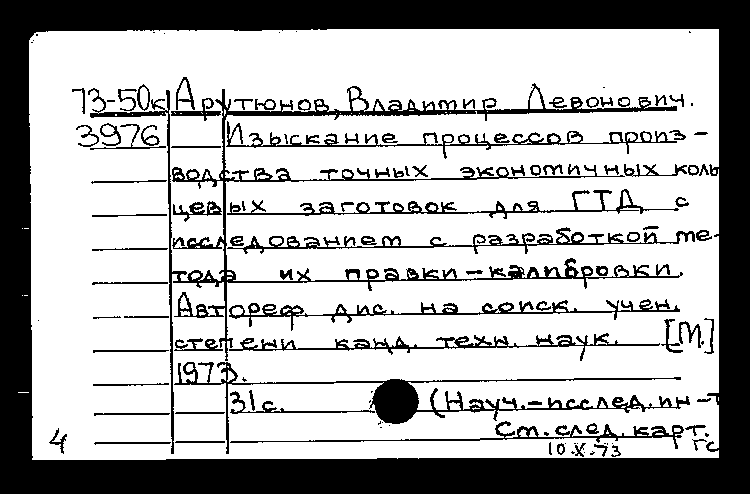 73-50к Арутюнов, Владимир Левонович.
3976 Изыскание процессов произ-
водства точных экономичных коль
цевых заготовок для ГТД с
исследованием с разработкой ме-
тода их правки-калибровки.
Автореф дис. на соиск. учен.
степени канд. техн. наук. [М.]
1973.
31с. (Науч.-исслед.ин-т
См.след.карт.
4 10.X.73 ГС